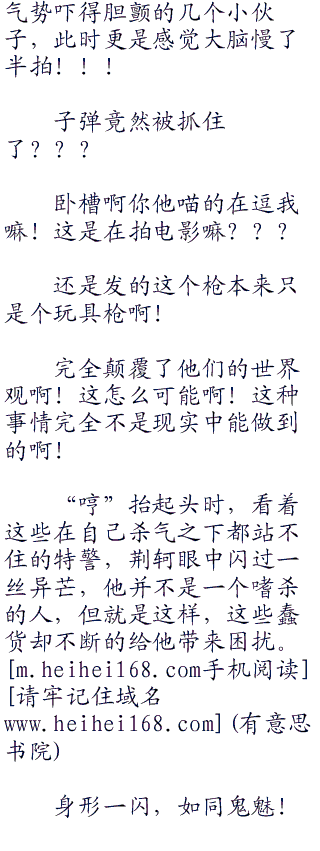 气势吓得胆颤的几个小伙
子，此时更是感觉大脑慢了
半拍！！！
子弹竟然被抓住
了？？？
卧槽啊你他喵的在逗我
嘛！这是在拍电影嘛？？？
还是发的这个枪本来只
是个玩具枪啊！
完全颠覆了他们的世界
观啊！这怎么可能啊！这种
事情完全不是现实中能做到
的啊！
“哼”抬起头时，看着
这些在自己杀气之下都站不
住的特警，荆轲眼中闪过一
丝异芒，他并不是一个嗜杀
的人，但就是这样，这些蠢
货却不断的给他带来困扰。
[m.heihei168.com手机阅读]
[请牢记住域名
www.heihei168.com](有意思
书院)
身形一闪，如同鬼魅！